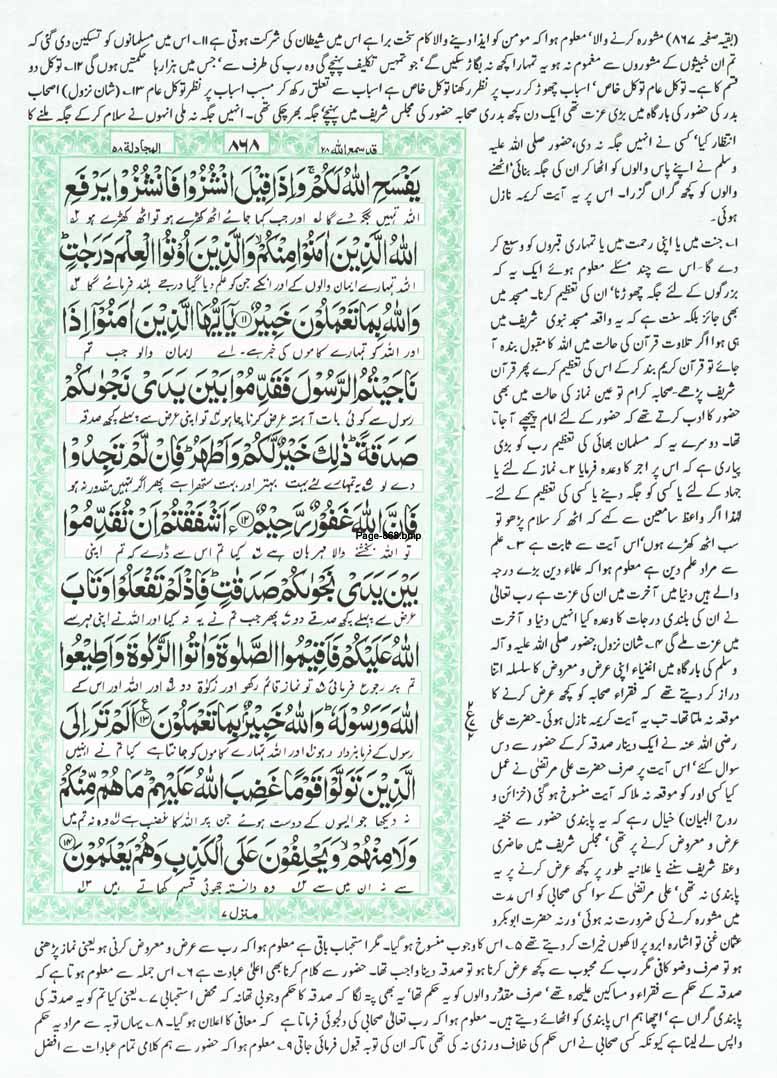 (بقیہ صفحہ ۸۶۷) مشورہ کرنے والا' معلوم ہوا کہ مومن کو ایذا دینے والا کام سخت برا ہے اس میں شیطان کی شرکت ہوتی ہے ۱۱۔ اس میں مسلمانوں کو تسکین دی گئی کہ
تم ان خبیثوں کے مشوروں سے مغموم نہ ہو یہ تمہارا کچھ نہ بگاڑ سکیں گے' جو تمہیں تکلیف پہنچے گی وہ رب کی طرف سے' جس میں ہزارہا حکمتیں ہوں گی ۱۲۔ توکل دو
قسم کا ہے۔ توکل عام توکل خاص' اسباب چھوڑ کر رب پر نظر رکھنا توکل خاص ہے اسباب سے تعلق رکھ کر مسبب اسباب پر نظر توکل عام ۱۳۔ (شان نزول) اصحاب
بدر کی حضور کی بارگاہ میں بڑی عزت تھی ایک دن کچھ بدری صحابہ حضور کی مجلس شریف میں پہنچے جگہ بھر چکی تھی۔ انہیں جگہ نہ ملی انہوں نے سلام کر کے جگہ ملنے کا
انتظار کیا' کسی نے انہیں جگہ نہ دی، حضور صلی اللہ علیہ
وسلم نے اپنے پاس والوں کو اٹھا کر ان کی جگہ بنائی' اٹھنے
والوں کو کچھ گراں گزرا۔ اس پر یہ آیت کریمہ نازل
ہوئی۔
۱۔ جنت میں یا اپنی رحمت میں یا تمہاری قبروں کو وسیع کر
دے گا۔ اس سے چند مسئلے معلوم ہوئے ایک یہ کہ
بزرگوں کے لئے جگہ چھوڑنا' ان کی تعظیم کرنا۔ مسجد میں
بھی جائز بلکہ سنت ہے کہ یہ واقعہ مسجد نبوی شریف میں
ہی ہوا اگر تلاوت قرآن کی حالت میں اللہ کا مقبول بندہ آ
جائے تو قرآن کریم بند کر کے اس کی تعظیم کرے پھر قرآن
شریف پڑھے۔ صحابہ کرام تو عین نماز کی حالت میں بھی
حضور کا ادب کرتے تھے کہ حضور کے لئے امام پیچھے آ جاتا
تھا۔ دوسرے یہ کہ مسلمان بھائی کی تعظیم رب کو بڑی
پیاری ہے کہ اس پر اجر کا وعدہ فرمایا ۲۔ نماز کے لئے یا
جہاد کے لئے یا کسی کو جگہ دینے یا کسی کی تعظیم کے لئے۔
لہٰذا اگر واعظ سامعین سے کہے کہ اٹھ کر سلام پڑھو تو
سب اٹھ کھڑے ہوں' اس آیت سے ثابت ہے ۳۔ علم
سے مراد علم دین ہے معلوم ہوا کہ علماء دین بڑے درجہ
والے ہیں دنیا میں آخرت میں ان کی عزت ہے رب تعالیٰ
نے ان کی بلندی درجات کا وعدہ کیا انہیں دنیا و آخرت
میں عزت ملے گی ۴۔ شان نزول: حضور صلی اللہ علیہ و آلہ
وسلم کی بارگاہ میں اغنیاء اپنی عرض و معروض کا سلسلہ اتنا
دراز کر دیتے تھے کہ فقراء صحابہ کو کچھ عرض کرنے کا
موقعہ نہ ملتا تھا۔ تب یہ آیت کریمہ نازل ہوئی۔ حضرت علی
رضی اللہ عنہ نے ایک دینار صدقہ کر کے حضور سے دس
سوال کئے' اس آیت پر صرف حضرت علی مرتضٰی نے عمل
کیا کسی اور کو موقعہ نہ ملا کہ آیت منسوخ ہو گئی (خزائن و
روح البیان) خیال رہے کہ یہ پابندی حضور سے خفیہ
عرض و معروض کرنے پر تھی' مجلس شریف میں حاضری
وعظ شریف سننے یا علانیہ طور پر کچھ عرض کرنے پر یہ
پابندی نہ تھی' علی مرتضٰی کے سوا کسی صحابی کو اس مدت
میں مشورہ کرنے کی ضرورت نہ ہوئی' ورنہ حضرت ابوبکر و
عثمان غنی تو اشارہ ابرو پر لاکھوں خیرات کر دیتے تھے ۵۔ اس کا وجوب منسوخ ہو گیا۔ مگر استحباب باقی ہے معلوم ہوا کہ رب سے عرض و معروض کرنی ہو یعنی نماز پڑھنی
ہو تو صرف وضو کافی مگر رب کے محبوب سے کچھ عرض کرنا ہو تو صدقہ دینا واجب تھا۔ حضور سے کلام کرنا بھی اعلیٰ عبادت ہے ۶۔ اس جملہ سے معلوم ہوتا ہے کہ
صدقہ کے حکم سے فقراء و مساکین علیحدہ تھے' صرف مقدور والوں کو یہ حکم تھا' یہ بھی پتہ لگا کہ صدقہ کا حکم وجوبی تھا نہ کہ محض استحبابی ۷۔ یعنی کیا تم کو یہ صدقہ کی
پابندی گراں ہے' اچھا ہم اس پابندی کو اٹھائے دیتے ہیں۔ معلوم ہوا کہ رب تعالیٰ صحابی کی دلجوئی فرماتا ہے کہ معافی کا اعلان ہو گیا۔ ۸۔ یہاں توبہ سے مراد یہ حکم
واپس لے لینا ہے کیونکہ کسی صحابی نے اس حکم کی خلاف ورزی نہ کی تھی تاکہ ان کی توبہ قبول فرمائی جاتی ۹۔ معلوم ہوا کہ حضور سے ہم کلامی تمام عبادات سے افضل
قد سمع اللہ ۲۸
۸۶۸
المجادلة ۵۸
يَفْسَحِ اللّٰهُ لَكُمْ ۚ وَاِذَا قِيْلَ انْشُزُوْا فَانْشُزُوْا يَرْفَعِ
اللہ تمہیں جگہ دے گا ۱؎ اور جب کہا جائے اٹھ کھڑے ہو تو اٹھ کھڑے ہو ۲؎
اللّٰهُ الَّذِيْنَ اٰمَنُوْا مِنْكُمْ ۙ وَالَّذِيْنَ اُوْتُوا الْعِلْمَ دَرَجٰتٍ ۭ
اللہ تمہارے ایمان والوں کے اور انکے جن کو علم دیا گیا درجے بلند فرمائے گا ۳؎
وَاللّٰهُ بِمَا تَعْمَلُوْنَ خَبِيْرٌ ۝۱۱ يٰٓاَيُّهَا الَّذِيْنَ اٰمَنُوْٓا اِذَا
اور اللہ کو تمہارے کاموں کی خبر ہے۔ اے ایمان والو جب تم
نَاجَيْتُمُ الرَّسُوْلَ فَقَدِّمُوْا بَيْنَ يَدَيْ نَجْوٰىكُمْ
رسول سے کوئی بات آہستہ عرض کرنا چاہو تو اپنی عرض سے پہلے کچھ صدقہ
صَدَقَةً ۭ ذٰلِكَ خَيْرٌ لَّكُمْ وَاَطْهَرُ ۭ فَاِنْ لَّمْ تَجِدُوْا
دے لو یہ تمہارے لئے بہت بہتر اور بہت ستھرا ہے پھر اگر تمہیں مقدور نہ ہو
فَاِنَّ اللّٰهَ غَفُوْرٌ رَّحِيْمٌ ۝۱۲ ءَاَشْفَقْتُمْ اَنْ تُقَدِّمُوْا
Page-868.bmp
تو اللہ بخشنے والا مہربان ہے کیا تم اس سے ڈرے کہ تم اپنی
بَيْنَ يَدَيْ نَجْوٰىكُمْ صَدَقٰتٍ ۭ فَاِذْ لَمْ تَفْعَلُوْا وَتَابَ
عرض سے پہلے کچھ صدقے دو ۷؎ پھر جب تم نے یہ نہ کیا اور اللہ نے اپنی مہر سے
اللّٰهُ عَلَيْكُمْ فَاَقِيْمُوا الصَّلٰوةَ وَاٰتُوا الزَّكٰوةَ وَاَطِيْعُوا
تم پر رجوع فرمائی ۸؎ تو نماز قائم رکھو اور زکوٰۃ دو ۹؎ اور اللہ اور اس کے
اللّٰهَ وَرَسُوْلَهٗ ۭ وَاللّٰهُ خَبِيْرٌۢ بِمَا تَعْمَلُوْنَ ۝۱۳ اَلَمْ تَرَ اِلَى
رسول کے فرمانبردار رہو اور اللہ تمہارے کاموں کو جانتا ہے کیا تم نے انہیں
الَّذِيْنَ تَوَلَّوْا قَوْمًا غَضِبَ اللّٰهُ عَلَيْهِمْ ۭ مَا هُمْ مِّنْكُمْ
نہ دیکھا جو ایسوں کے دوست ہوئے جن پر اللہ کا غضب ہے وہ نہ تم میں
وَلَا مِنْهُمْ ۙ وَيَحْلِفُوْنَ عَلَى الْكَذِبِ وَهُمْ يَعْلَمُوْنَ ۝۱۴
سے نہ ان میں سے وہ دانستہ جھوٹی قسم کھاتے ہیں
منزل ۷
ع